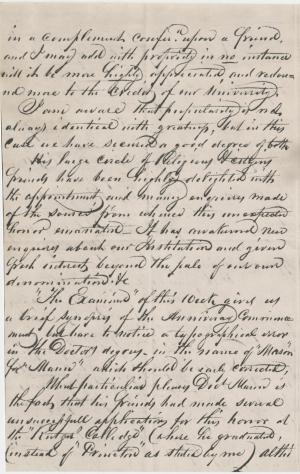 in a complement confer^d upon a friend,
and I may add with propriety in no instance
will it be more highly appreciated and redound
more to the Credit of our University.
I am aware that popularity is not
always identical with greatness, but in this
case we have secured a good degree of both
His large circle of Religious &
friends have been highly delighted with
the appointment and many enquires made
of the source from whence this unexpected
honor emanated. It has awakened new
enquires about our Institution and given
fresh interest beyond the pale of our own
denomination &c
"The Examiner" of this Week gives us
a brief synopsis of the Anniversary
must but have to notice a typographical error
in the Doctor^s degrees, in the names of "Mason
for "Mann" which should be each corrected,
What particularly pleases Doc^r Mann is
the fact, that his friends had made several
unsuccessfull applications for this honor at
the "Rutgers Colledge" (where he graduated,
instead of "Princeton" as stated by me) altho